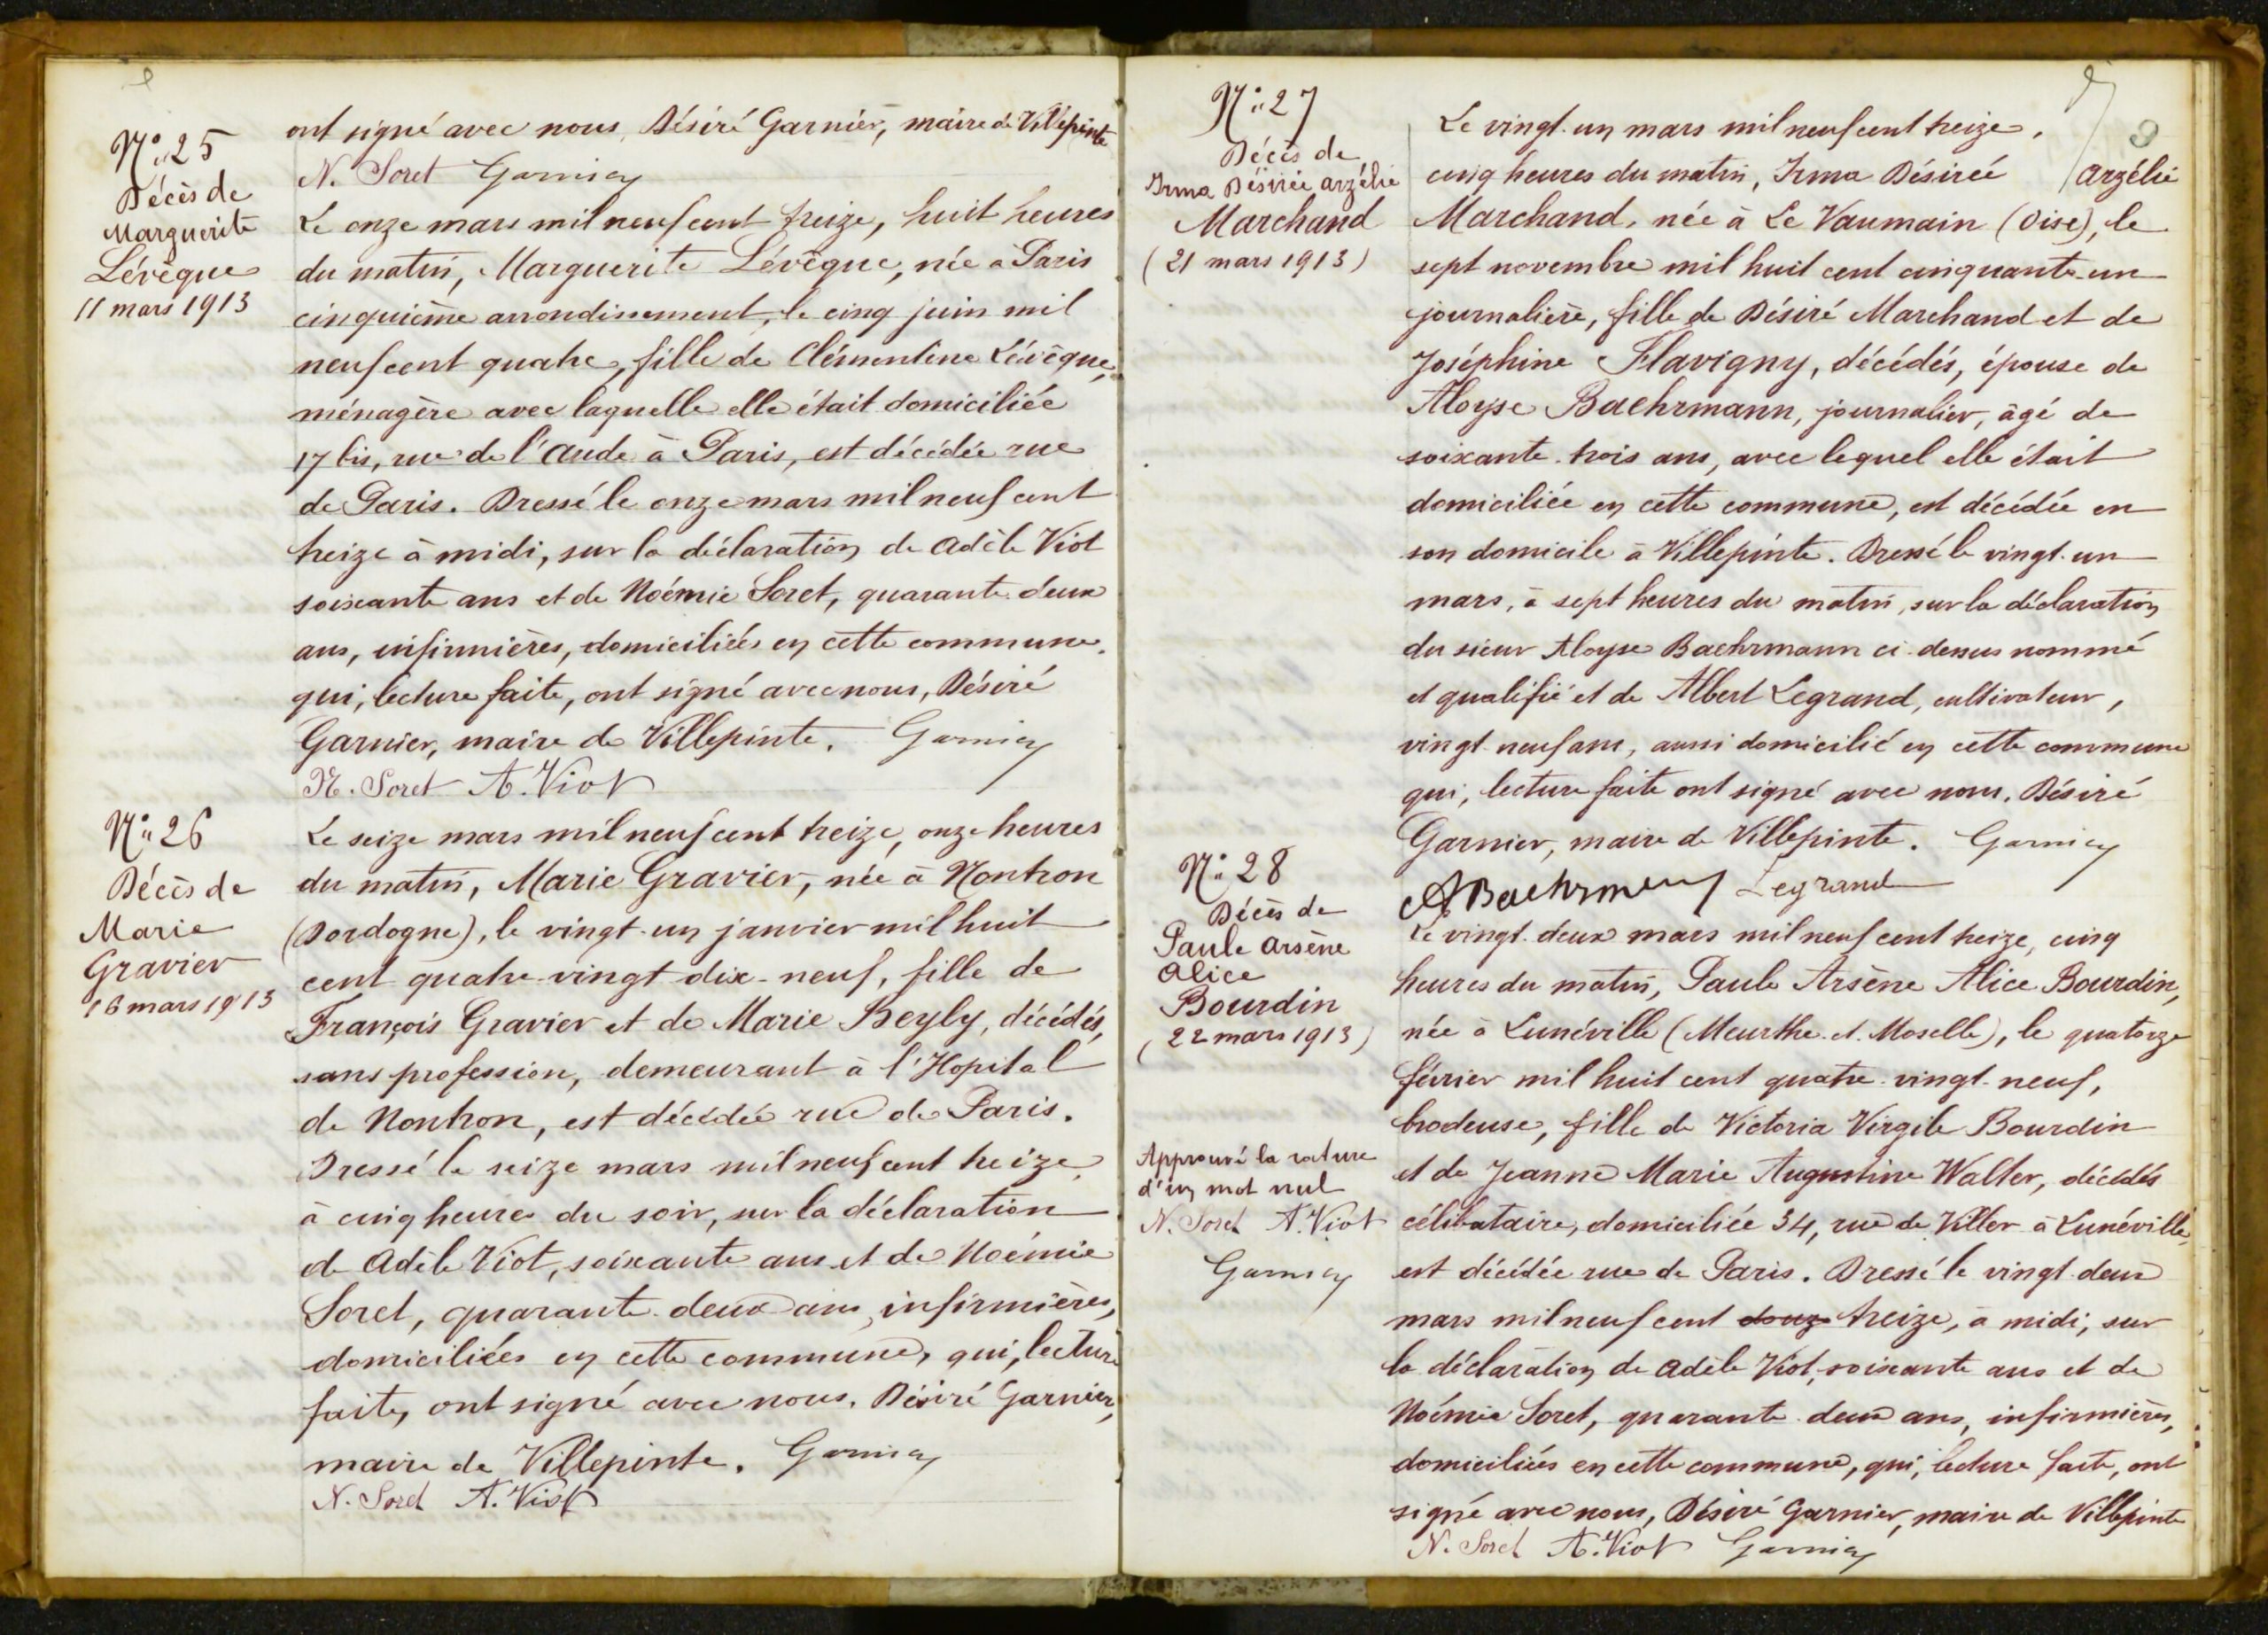 ont signé avec nous, Désiré Garnier, maire de Villepinte
N. Soret Garnier
N° 25
Décès de
Marguerite
Lévêque
11 mars 1913
Le onze mars mil neuf cent treize, huit heures
du matin, Marguerite Lévêque, née à Paris
cinquième arrondissement, le cinq juin mil
neuf cent quatre, fille de Clémentine Lévêque,
ménagère avec laquelle elle était domiciliée
17 bis, rue de l'Aude à Paris, est décédée rue
de Paris. Dressé le onze mars mil neuf cent
treize à midi, sur la déclaration de Adèle Viot
soixante ans et de Noémie Soret, quarante deux
ans, infirmières, domiciliées en cette commune.
qui, lecture faite, ont signé avec nous, Désiré
Garnier, maire de Villepinte. Garnier
N. Soret A. Viot
N° 26
Décès de
Marie
Gravier
16 mars 1913
Le seize mars mil neuf cent treize, onze heures
du matin, Marie Gravier, née à Nontron
(Dordogne), le vingt-un janvier mil huit
cent quatre-vingt dix-neuf, fille de
François Gravier et de Marie Beyly, décédés,
sans profession, demeurant à l'Hopital
de Nontron, est décédée rue de Paris.
Dressé le seize mars mil neuf cent treize
à cinq heures du soir, sur la déclaration
de Adèle Viot, soixante ans et de Noémie
Soret, quarante deux ans, infirmières,
domiciliées en cette commune, qui, lecture
faite, ont signé avec nous, Désiré Garnier,
maire de Villepinte. Garnier
N. Soret A. Viot
N° 27
Décès de
Irma Désirée Arzélie
Marchand
(21 mars 1913)
9
Le vingt-un mars mil neuf cent treize,
cinq heures du matin, Irma Désirée / Arzélie
Marchand, née à Le Vaumain (Oise), le
sept novembre mil huit cent cinquante-un
journalière, fille de Désiré Marchand et de
Joséphine Flavigny, décédés, épouse de
Aloyse Baehrmann, journalier, âgé de
soixante-trois ans, avec lequel elle était
domiciliée en cette commune, est décédée en
son domicile à Villepinte. Dressé le vingt-un
mars, à sept heures du matin, sur la déclaration
du sieur Aloyse Baehrmann ci-dessus nommé
et qualifié et de Albert Legrand, cultivateur,
vingt-neuf ans, aussi domicilié en cette commune
qui, lecture faite ont signé avec nous, Désiré
Garnier, maire de Villepinte. Garnier
A Baehrmann Legrand
N° 28
Décès de
Paule Arsène
Alice
Bourdin
(22 mars 1913)
Le vingt-deux mars mil neuf cent treize, cinq
heures du matin, Paule Arsène Alice Bourdin,
née à Lunéville (Meurthe-et-Moselle), le quatorze
février mil huit cent quatre-vingt-neuf,
brodeuse, fille de Victoria Virgile Bourdin
et de Jeanne Marie Augustine Walter, décédés
célibataire, domiciliée 34, rue de Viller à Lunéville,
est décédée rue de Paris. Dressé le vingt-deux
mars mil neuf cent douze treize, à midi, sur
la déclaration de Adèle Viot, soixante ans et de
Noémie Soret, quarante-deux ans, infirmières,
domiciliées en cette commune, qui, lecture faite, ont
signé avec nous, Désiré Garnier, maire de Villepinte
N. Soret A. Viot Garnier
Approuvé la rature
d'un mot nul
N. Soret A. Viot
Garnier